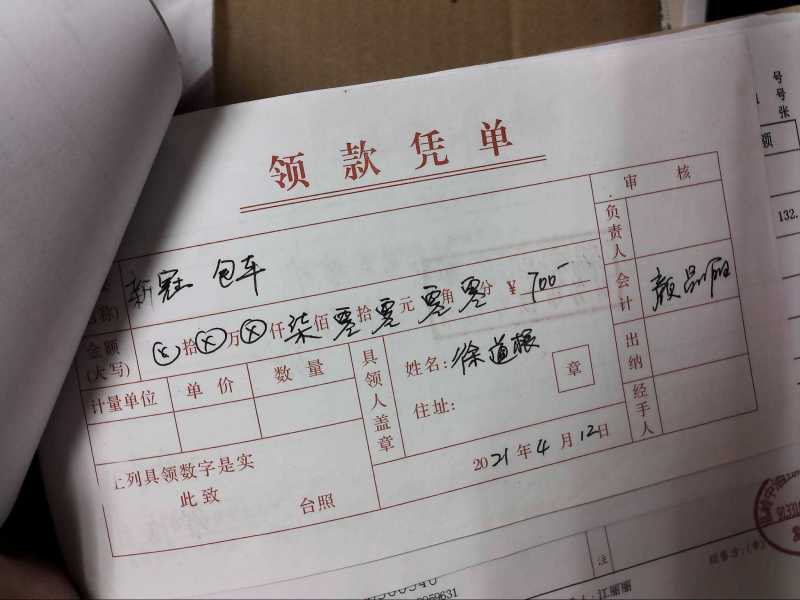 领款凭单
审核
负责人
新冠 包车
称)
会计 颜品丽
金额(大写) ⊗拾⊗万⊗仟柒佰零拾零元零角零分 ¥700-
出纳
计量单位 单价 数量
具领人盖章
姓名: 徐道根
章
住址:
经手人
上列具领数字是实
此致 台照
2021年4月12日
号
号
张
额
132.
注
059631
销售方:(章)